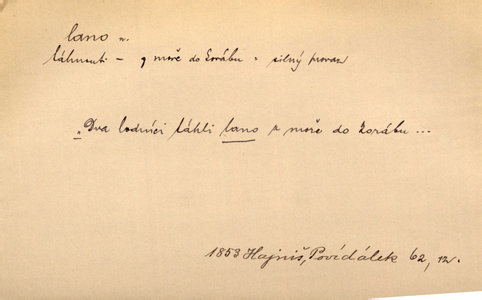 lano n.
táhnouti – z moře do korábu = silný provaz
„Dva lodníci táhli lano z moře do korábu ...
1853 Hajniš, Povídálek 62, 12.